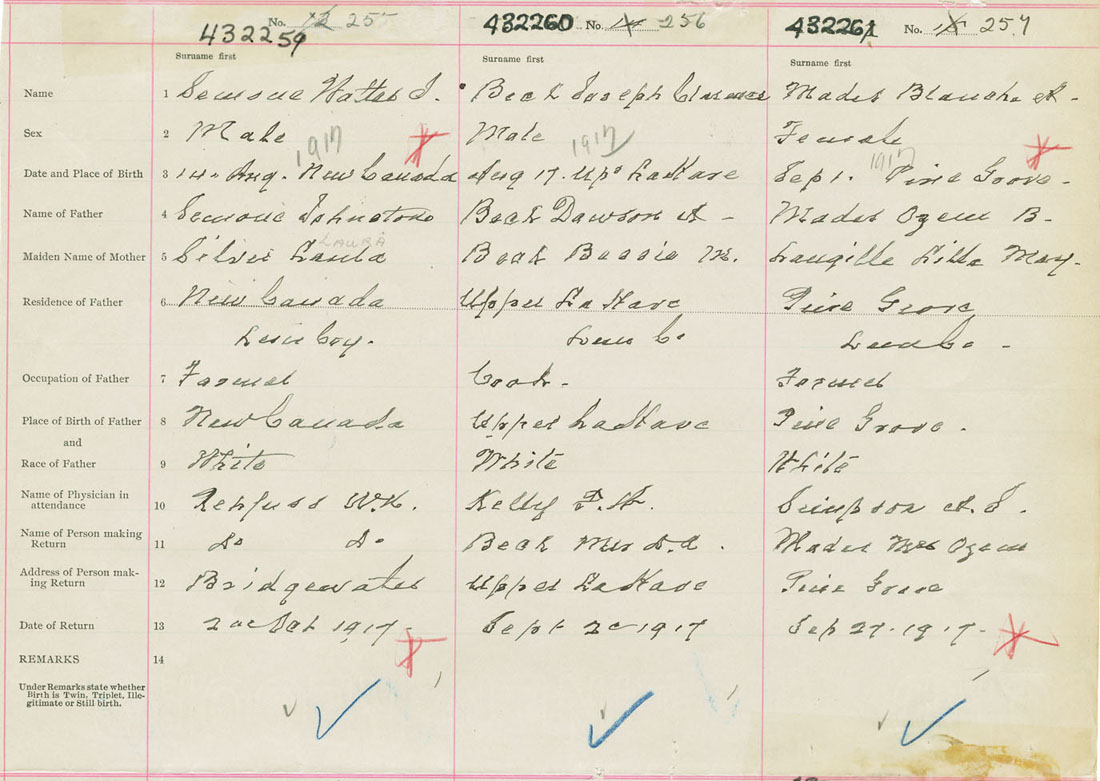 432259 No. 12 255 432260 No. 14 256 432261 No. 15 257
Surname first Surname first Surname first
Name 1 Lemone Walter J. Beck Joseph Clarence Mader Blanche A.
Sex 2 Male Male Female
1917 1917 1917
Date and Place of Birth 3 14. Aug. New Canada Aug 17. Upr LaHave Sep 1. Pine Grove.
Name of Father 4 Johnstone Beck Dawson A Mader Ozem B.
LAURA
Maiden Name of Mother 5 Beck Bessie M. Langille Lilla May.
Residence of Father 6 New Canada Upper LaHave Pine Grove
Lun Coy. Lun Co Lun Co.
Occupation of Father 7 Farmer Cook. Farmer
Place of Birth of Father 8 New Canada Upper LaHave Pine Grove.
and
Race of Father 9 White White White
Name of Physician in
attendance 10 Rehfuss W.K. Kelly F.H. Simpson A.
Name of Person making
Return 11 Do Do Beck Mrs D.A. Mader Mrs Ozem
Address of Person mak-
ing Return 12 Bridgewater Upper LaHave Pine Grove
Date of Return 13 2 Oct 1917. Sept 1917 Sep 27. 1917.
REMARKS 14
Under Remarks state whether
Birth is Twin, Triplet, Ille-
gitimate or Still birth.